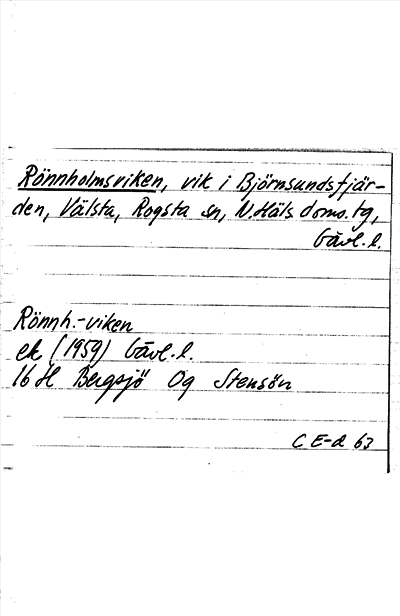 Rönnholmsviken, vik i Björnsundsfjär-
den, Välsta, Rogsta sn, N. Häls. doms. tg,
Gävl. l.
Rönnh.-viken
ek (1959) Gävl. l.
16 H Bergsjö Og Stensön
C E-d 63